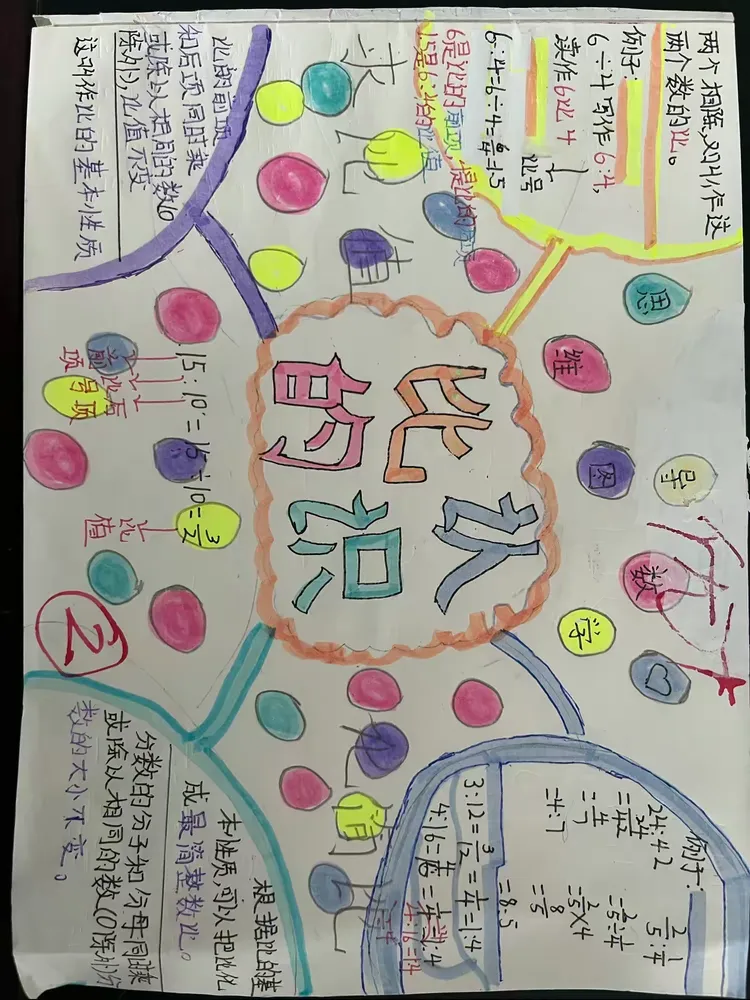 两个相除,又叫作这
两个数的比。
例子:
6÷4写作6:4,
读作6比4
比号
6:4=6÷4=6/4=1.5
6是比的前项,
1.5是6:4的比值
思维导图数学
例子:
24:42
=24/42
=4/7
=4:7
2/5:1/4
=2/5÷1/4
=2/5×4
=8/5
=8:5
3:12=3/12=1/4=1:4
4:16=4/16=1/4=1:4
比认
的识
求比值
化简比
比的前项
和后项同时乘
或除以相同的数(0
除外),比值不变
这叫作比的基本性质
15:10=15÷10=3/2
前项
比号
后项
比值
②
根据比的基
本性质,可以把比化
成最简整数比。
分数的分子和分母同时乘
或除以相同的数(0除外)分
数的大小不变。